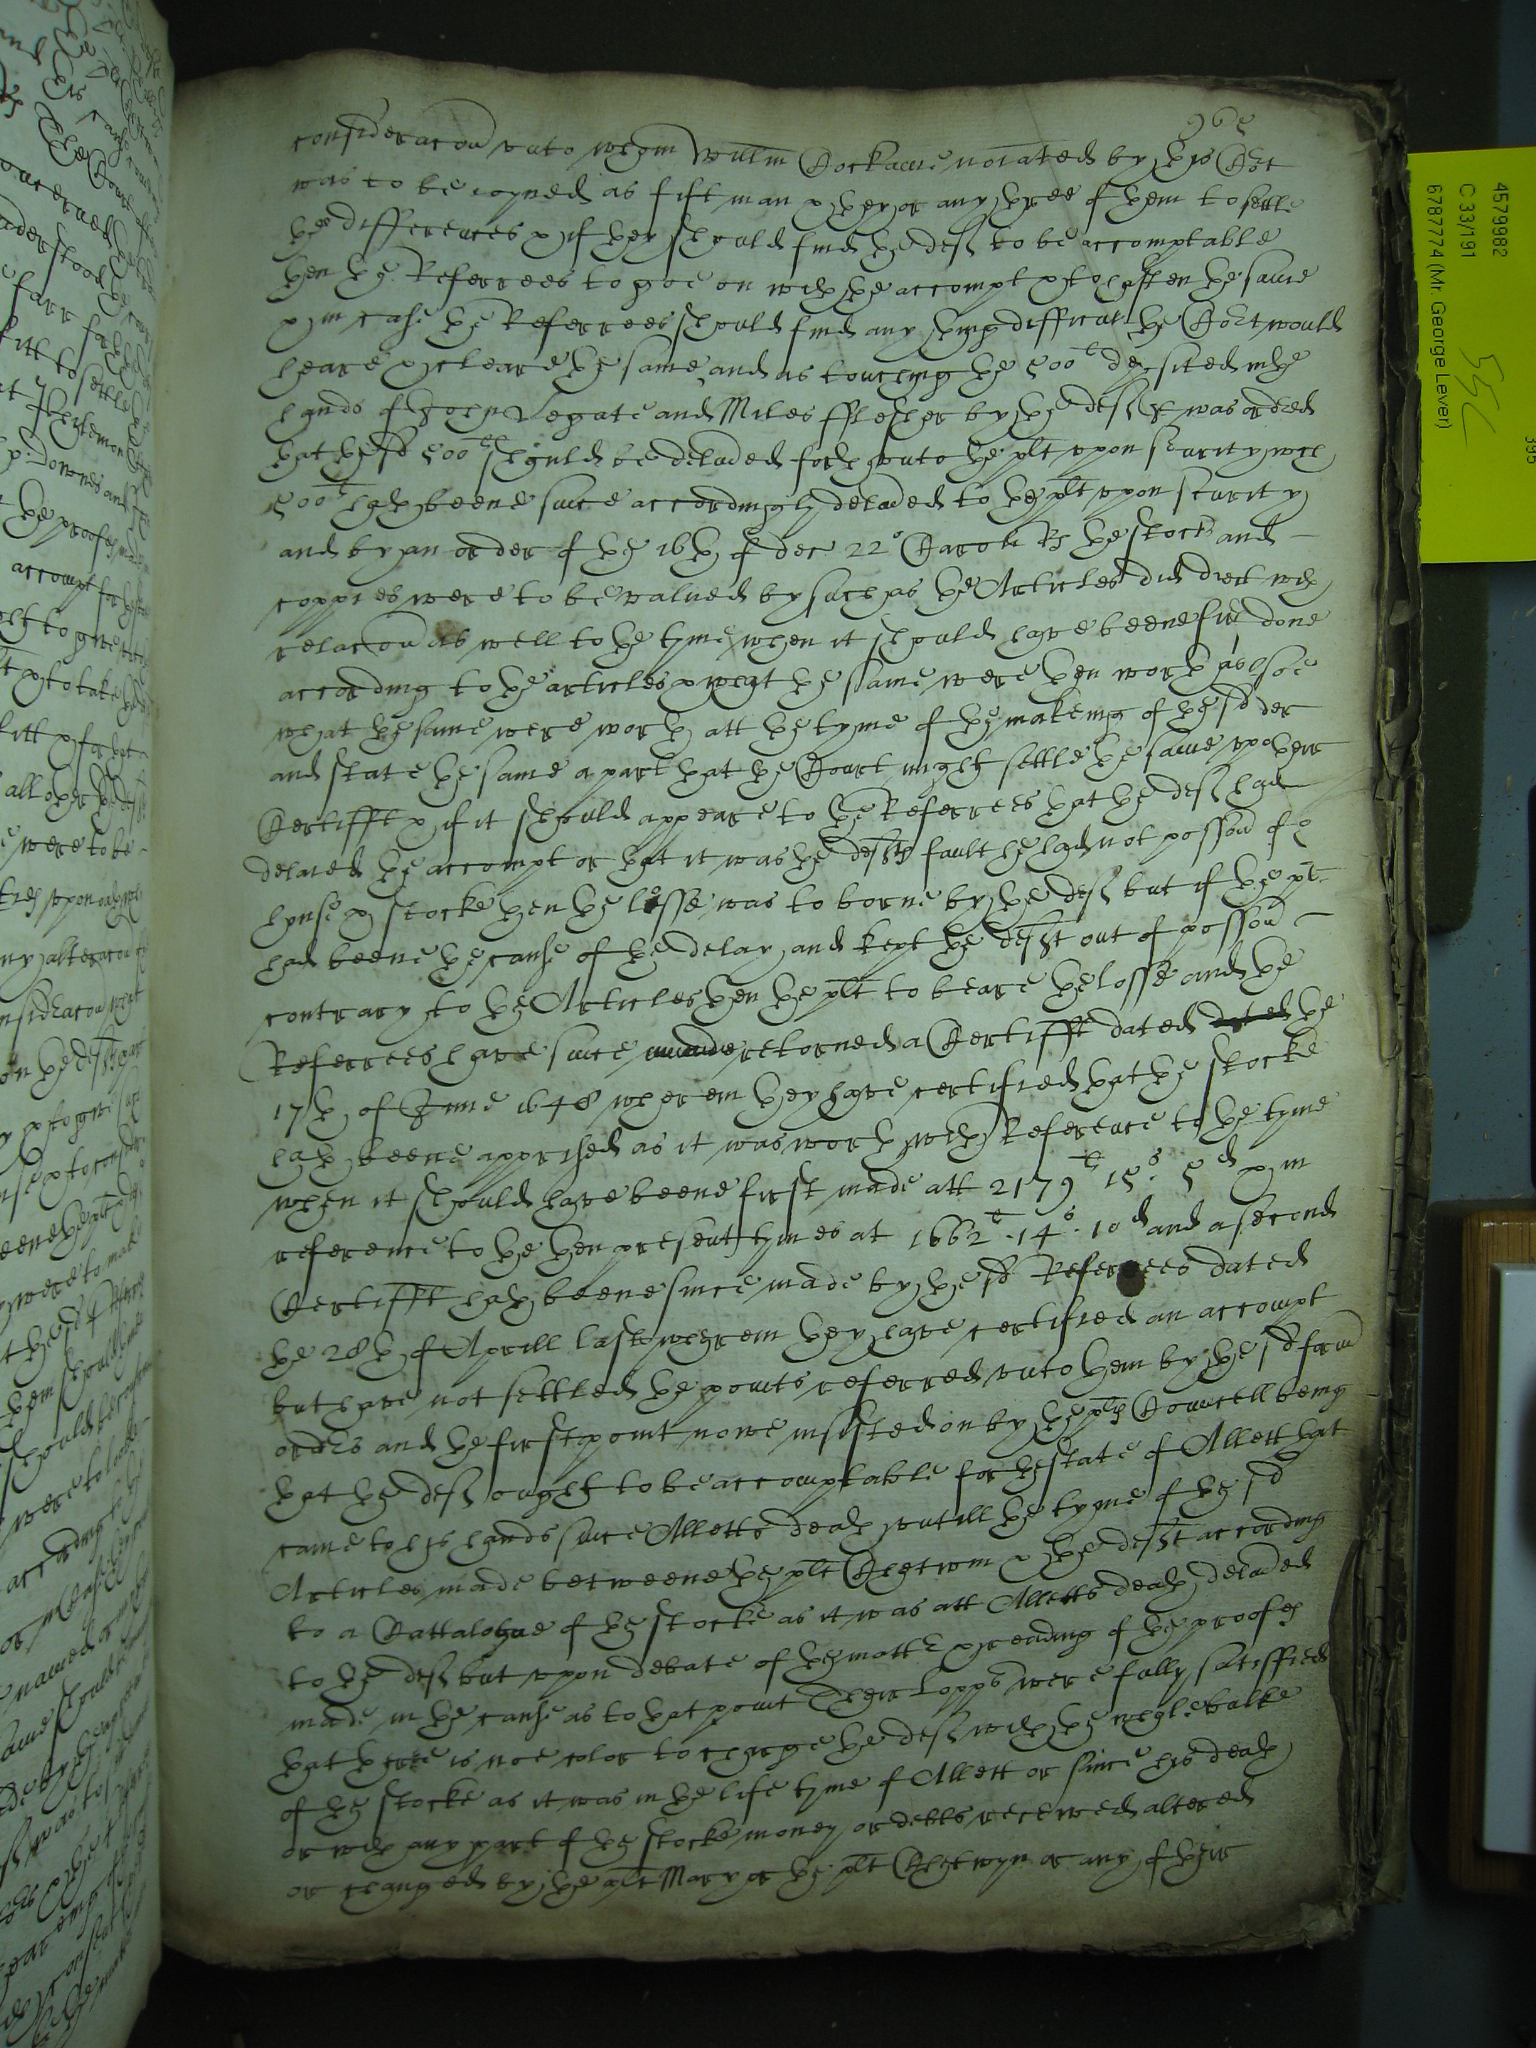 965
consideracon unto whom Willm Cockaine noiated by this Cort
was to be ioyned as fift man & they or any three of them to settle
the differences & if they should find the deft to be accomptable
then the Referrees to goe on with the accompt & to hasten the same
& in case the Referrees should find any thing difficult the Cort would
heare & cleare the same and as touching the 500l deposited in the
hands of John Legate and Miles fflesher by the deft it was ordred
that the sd 500li should be deliued forth unto the plt upon security wch
500l hath beene since accordingly deliued to the plt upon security
and by an order of the 16th of dec 22o Caroli Rs the stock and
coppies were to be valued by such as the Articles did direct with
relacon as well to the tyme when it should have beene first done
according to the articles & what the same were then worth as alsoe
what the same were worth att the tyme of the making of the sd order
and state the same apart that the Court might settle the same upon their
Certifft & if it should appeare to the Referrees that the deft had
delaied the accompt or that it was the defts fault he had not possion of the
house & stocke then the losse was to borne by the deft but if the plt
had beene the cause of the delay and kept the deft out of possion
contrary to the Articles then the plt to beare the losse and the
Referrees have since made retorned a Certifft dated dated the
17th of June 1648 wherein they have certified that the stocke
hath beene apprised as it was worth with Reference to the tyme
when it should have beene first made att 2179li 15s. 5d & in
reference to the then present tymes at 1662li. 14s. 10d and a second
Certifft hath beene since made by the sd Referrees dated
the 28th of Aprill last wherein they have certified an accompt
but have not settled the points referred unto them by the sd form
ordrs and the first point nowe insisted on by the plts Councell being
that the deft ought to be accomptable for the state of Allett that
came to his hands since Alletts death untill the tyme of the sd
Articles made betweene the plt Chetwin & the deft according
to a Cattalogue of the stocke as it was att Alletts death deliued
to the deft but upon debate of the mattr & reading of the proofes
made in the cause as to that point Their Lopps were fully satisffied
that there is noe color to charge the deft with the whole bulke
of the stocke as it was in the life tyme of Allett or since his death
or with any part of the stocke money or debts received altered
or changed by the plt Mary or the plt Chetwyn or any of their
4579982
C 33/191
6787774 (Mr. George Lever)
395